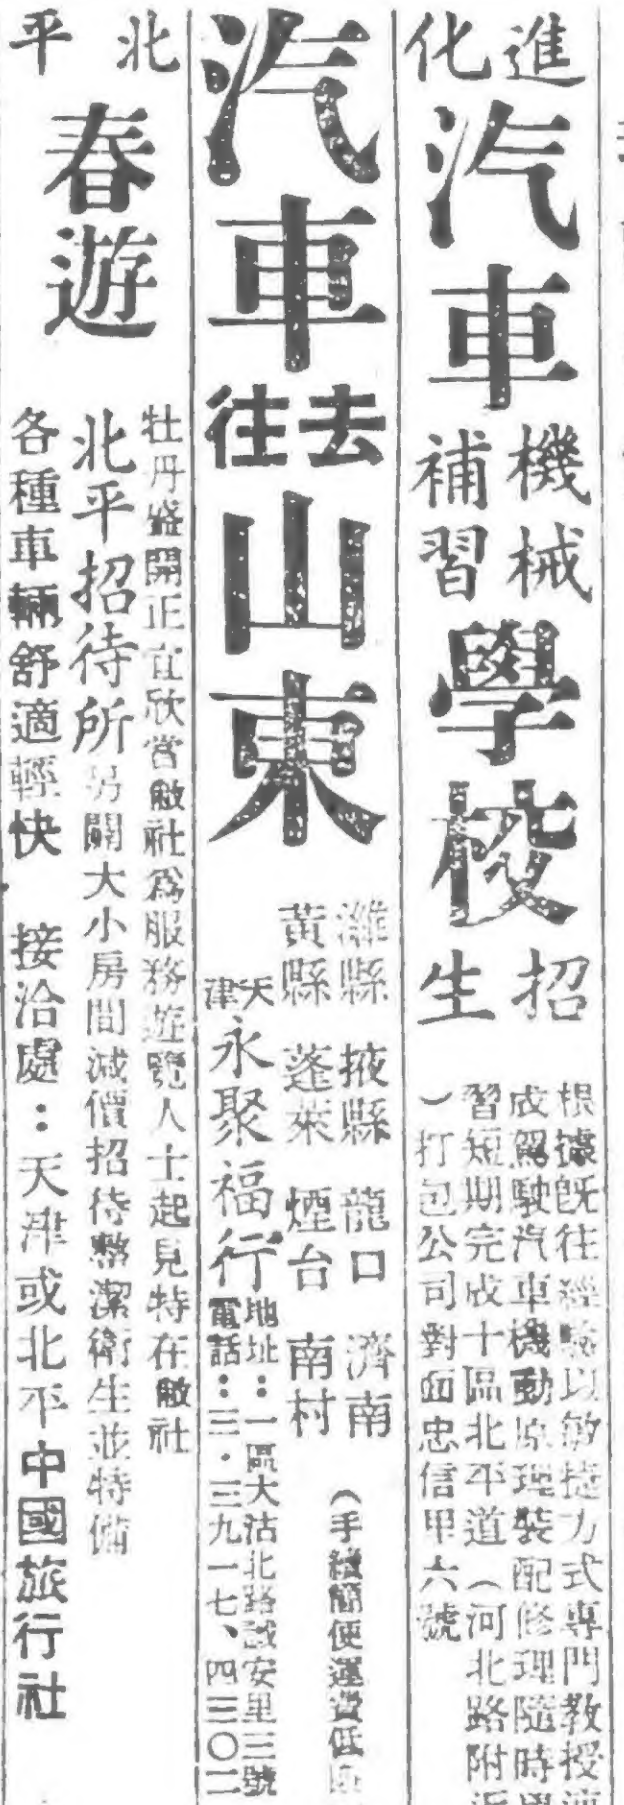 進化
汽車
機械
補習
學校
招生
根據既往經驗以敏捷方式專門教授
成駕駛汽車機動原理裝配修理隨時
習短期完成十區北平道(河北路附近
)打包公司對面忠信里六號
汽車
去往
山東
濰縣 掖縣 龍口 濟南
黃縣 蓬萊 煙台 南村
(手續簡便運費低廉
天津
永聚福行
地址:一區大沽北路誠安里三號
電話:三·三九一七、四三〇二
北平
春遊
牡丹盛開正宜欣賞敝社為服務遊覽人士起見特在敝社
北平招待所另闢大小房間減價招待整潔衛生並特備
各種車輛舒適輕快 接洽處:天津或北平中國旅行社